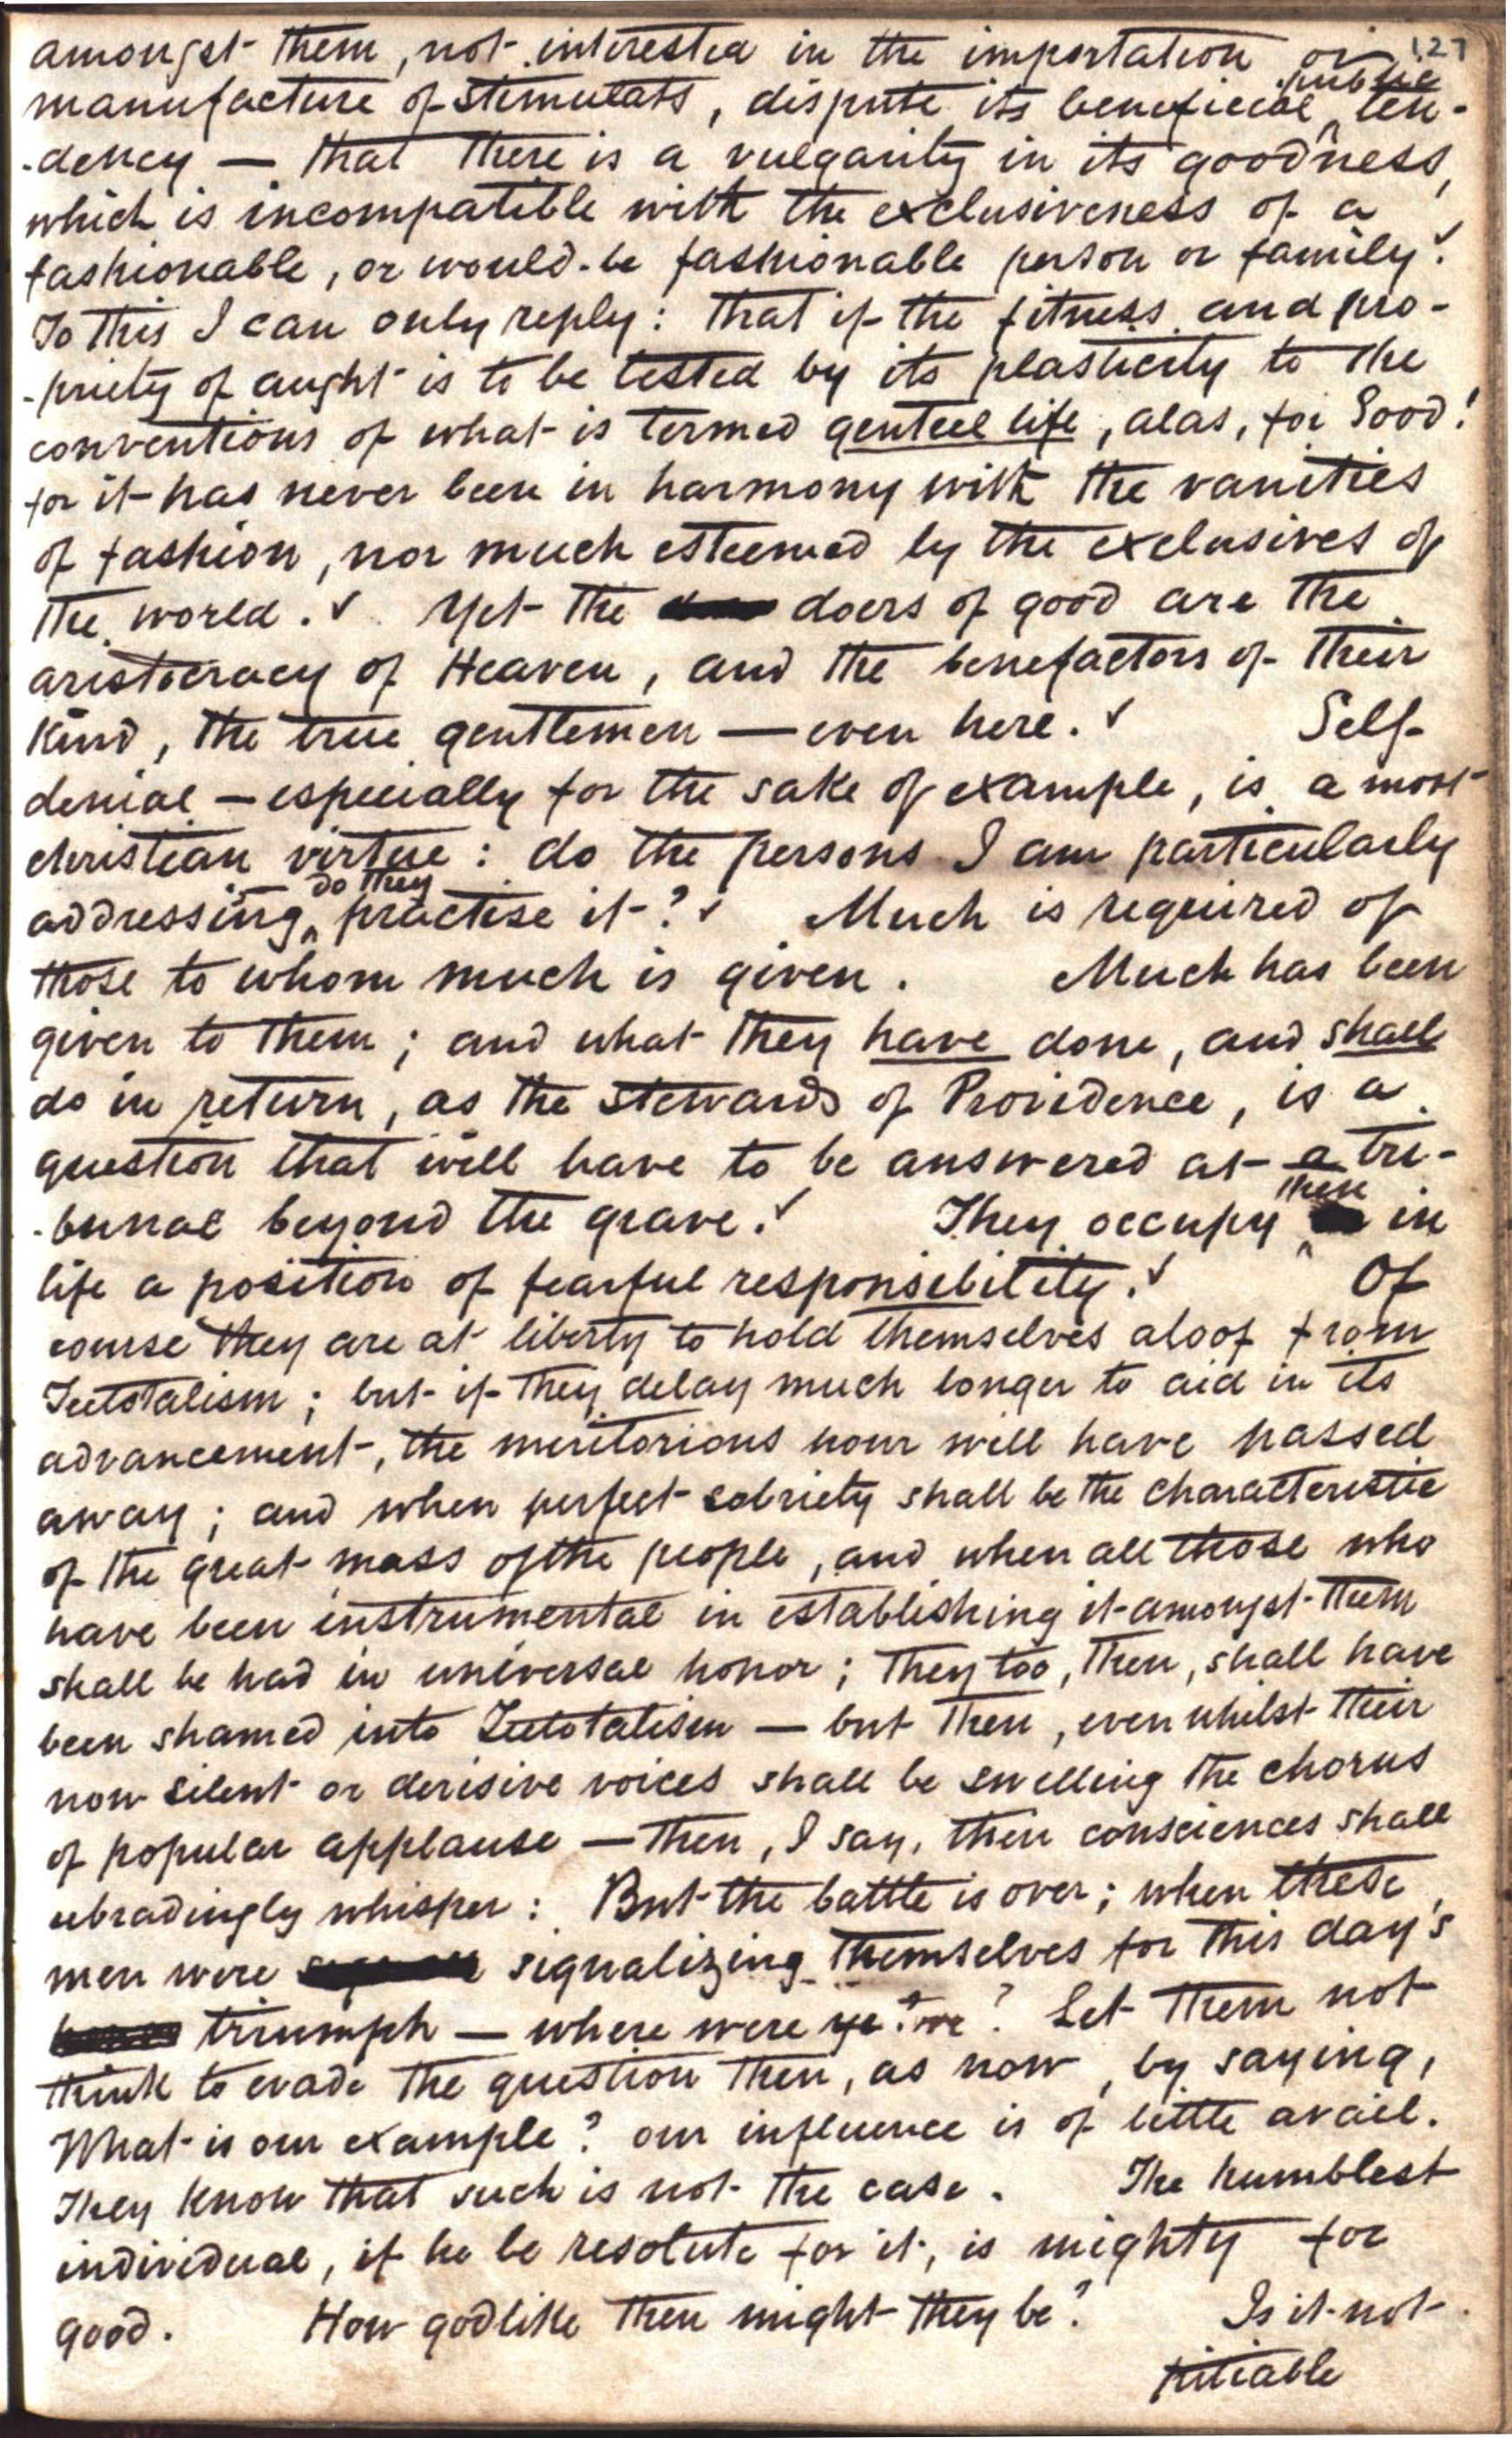 127
amongst them, not interested in the importation or
manufacture of stimulats, dispute its beneficial public ten-
-dency — that there is a vulgarity in its goodness,
which is incompatible with the exclusiveness of a
fashionable, or would-be fashionable person or family.
To this I can only reply: that if the fitness and pro-
-priety of aught is to be tested by its plasticity to the
conventions of what is termed genteel life, alas, for Good!
for it has never been in harmony with the vanities
of fashion, nor much esteemed by the exclusives of
the world. Yet the doers of good are the
aristocracy of Heaven, and the benefactors of their
kind, the true gentlemen — even here. Self-
denial — especially for the sake of example, is a most
christian virtue: do the persons I am particularly
addressing, do they practise it? Much is required of
those to whom much is given. Much has been
given to them; and what they have done, and shall
do in return, as the stewards of Providence, is a
question that will have to be answered at a tri-
-bunal beyond the grave. They occupy then in
life a position of fearful responsibility. Of
course they are at liberty to hold themselves aloof from
Teetotalism; but if they delay much longer to aid in its
advancement, the meritorious hour will have passed
away; and when perfect sobriety shall be the characteristic
of the great mass of the people, and when all those who
have been instrumental in establishing it amongst them
shall be had in universal honor; they too, then, shall have
been shamed into Teetotalism — but then, even whilst their
now silent or derisive voices shall be swelling the chorus
of popular applause — then, I say, their consciences shall
ubradingly whisper: But the battle is over; when these
men were signalizing themselves for this day's
triumph — where were ye? Let them not
think to evade the question then, as now, by saying,
What is our example? our influence is of little avail.
They know that such is not the case. The humblest
individual, if he be resolute for it, is mighty for
good. How godlike then might they be? Is it not
pitiable